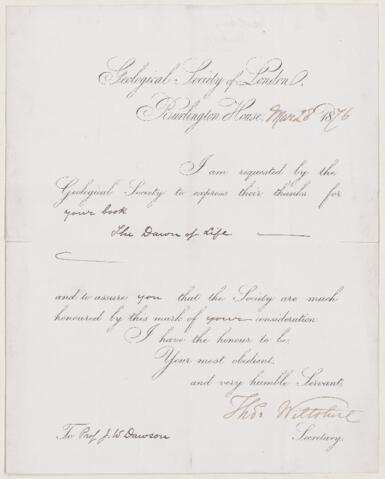 Geological Society of London.
Burlington House, Mar 28 1876
I am requested by the
Geological Society to express their thanks for
your book
The Dawn of Life
and to assure you that the Society are much
honoured by this mark of your consideration
I have the honour to be,
Your most obedient,
and very humble Servant,
Thos Wiltshire
Secretary.
To Prof. J. W. Dawson